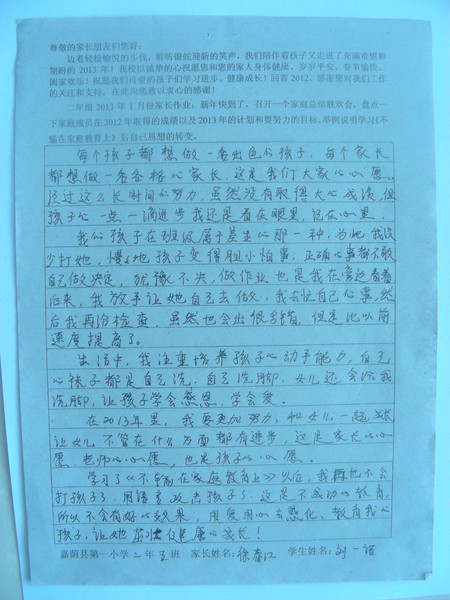 尊敬的家长朋友们您好:
迈着轻松愉悦的步伐,聆听银蛇迎新的笑声,我们陪伴着孩子又走进了充满希望和
期盼的2013年!我校以诚挚的心祝愿您和您的家人身体健康,岁岁平安,春节愉快,
阖家欢乐!祝愿我们可爱的孩子们学习进步、健康成长!回首2012,感谢您对我们工作
的关注和支持,在此向您致以衷心的感谢!
二年组2013年1月份家长作业:新年快到了,召开一个家庭总结联欢会,盘点一
下家庭成员在2012年取得的成绩以及2013年的计划和要努力的目标,举例说明学习《不
输在家庭教育上》后自己思想的转变。
每个孩子都想做一名出色的孩子,每个家长
都想做一名合格的家长,这是我们大家的心愿。
经过这么长时间的努力,虽然没有取得大的成绩,但
孩子的一点一滴进步我还是看在眼里,记在心里。
我的孩子在班级属于差生的那一种,为此我没
少打她,慢慢地孩子变得胆小怕事,正确的事都不敢
自己做决定,犹豫不决,做作业也是我在旁边看着
后来,我放手让她自己去做,我去忙自己的事,然
后我再给检查,虽然也会出很多错,但是比以前
速度提高了。
生活中,我注重培养孩子的动手能力,自己
的袜子都是自己洗,自己洗脚,女儿还会给我
洗脚,让孩子学会感恩,学会爱。
在2013年里,我要更加努力,和女儿一起成长
让女儿不管在什么方面都有进步,这是家长的心
愿,老师的心愿,也是孩子的心愿。
学习了《不输在家庭教育上》以后,我再也不会
打孩子了,用语言攻击孩子了,这是不成功的教育,
所以不会有好的效果,用爱的心去感化、教育我的
孩子,让她茁壮健康的成长!
嘉荫县第一小学二年五班 家长姓名:徐春江 学生姓名:刘一诺